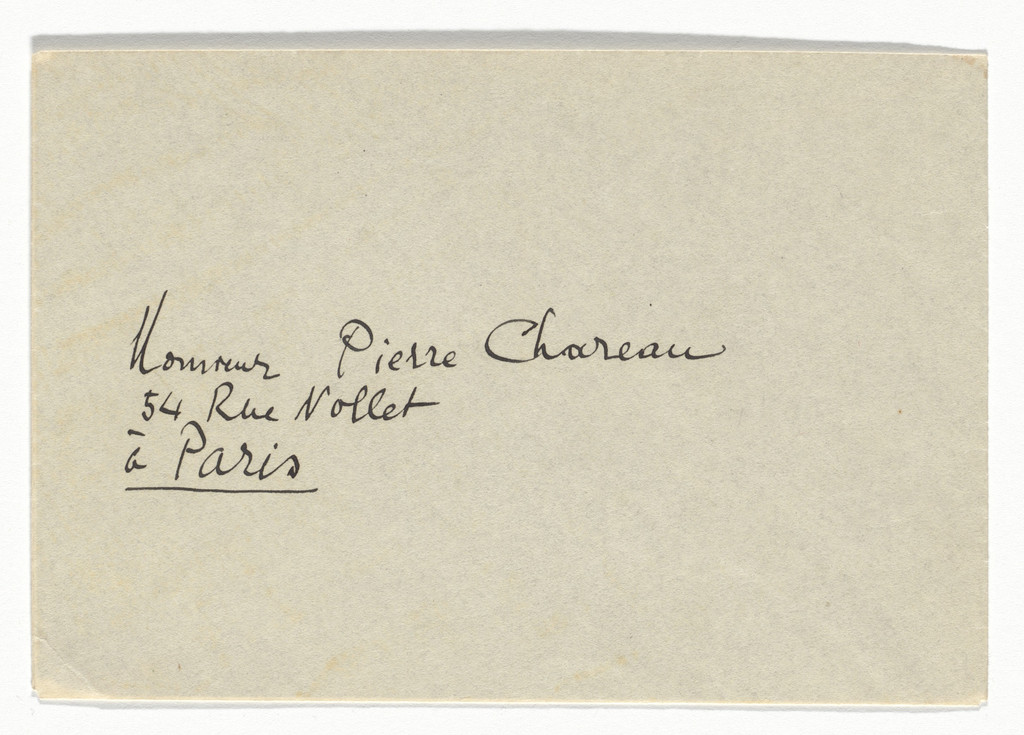 Monsieur Pierre Chareau
54 Rue Nollet
à Paris